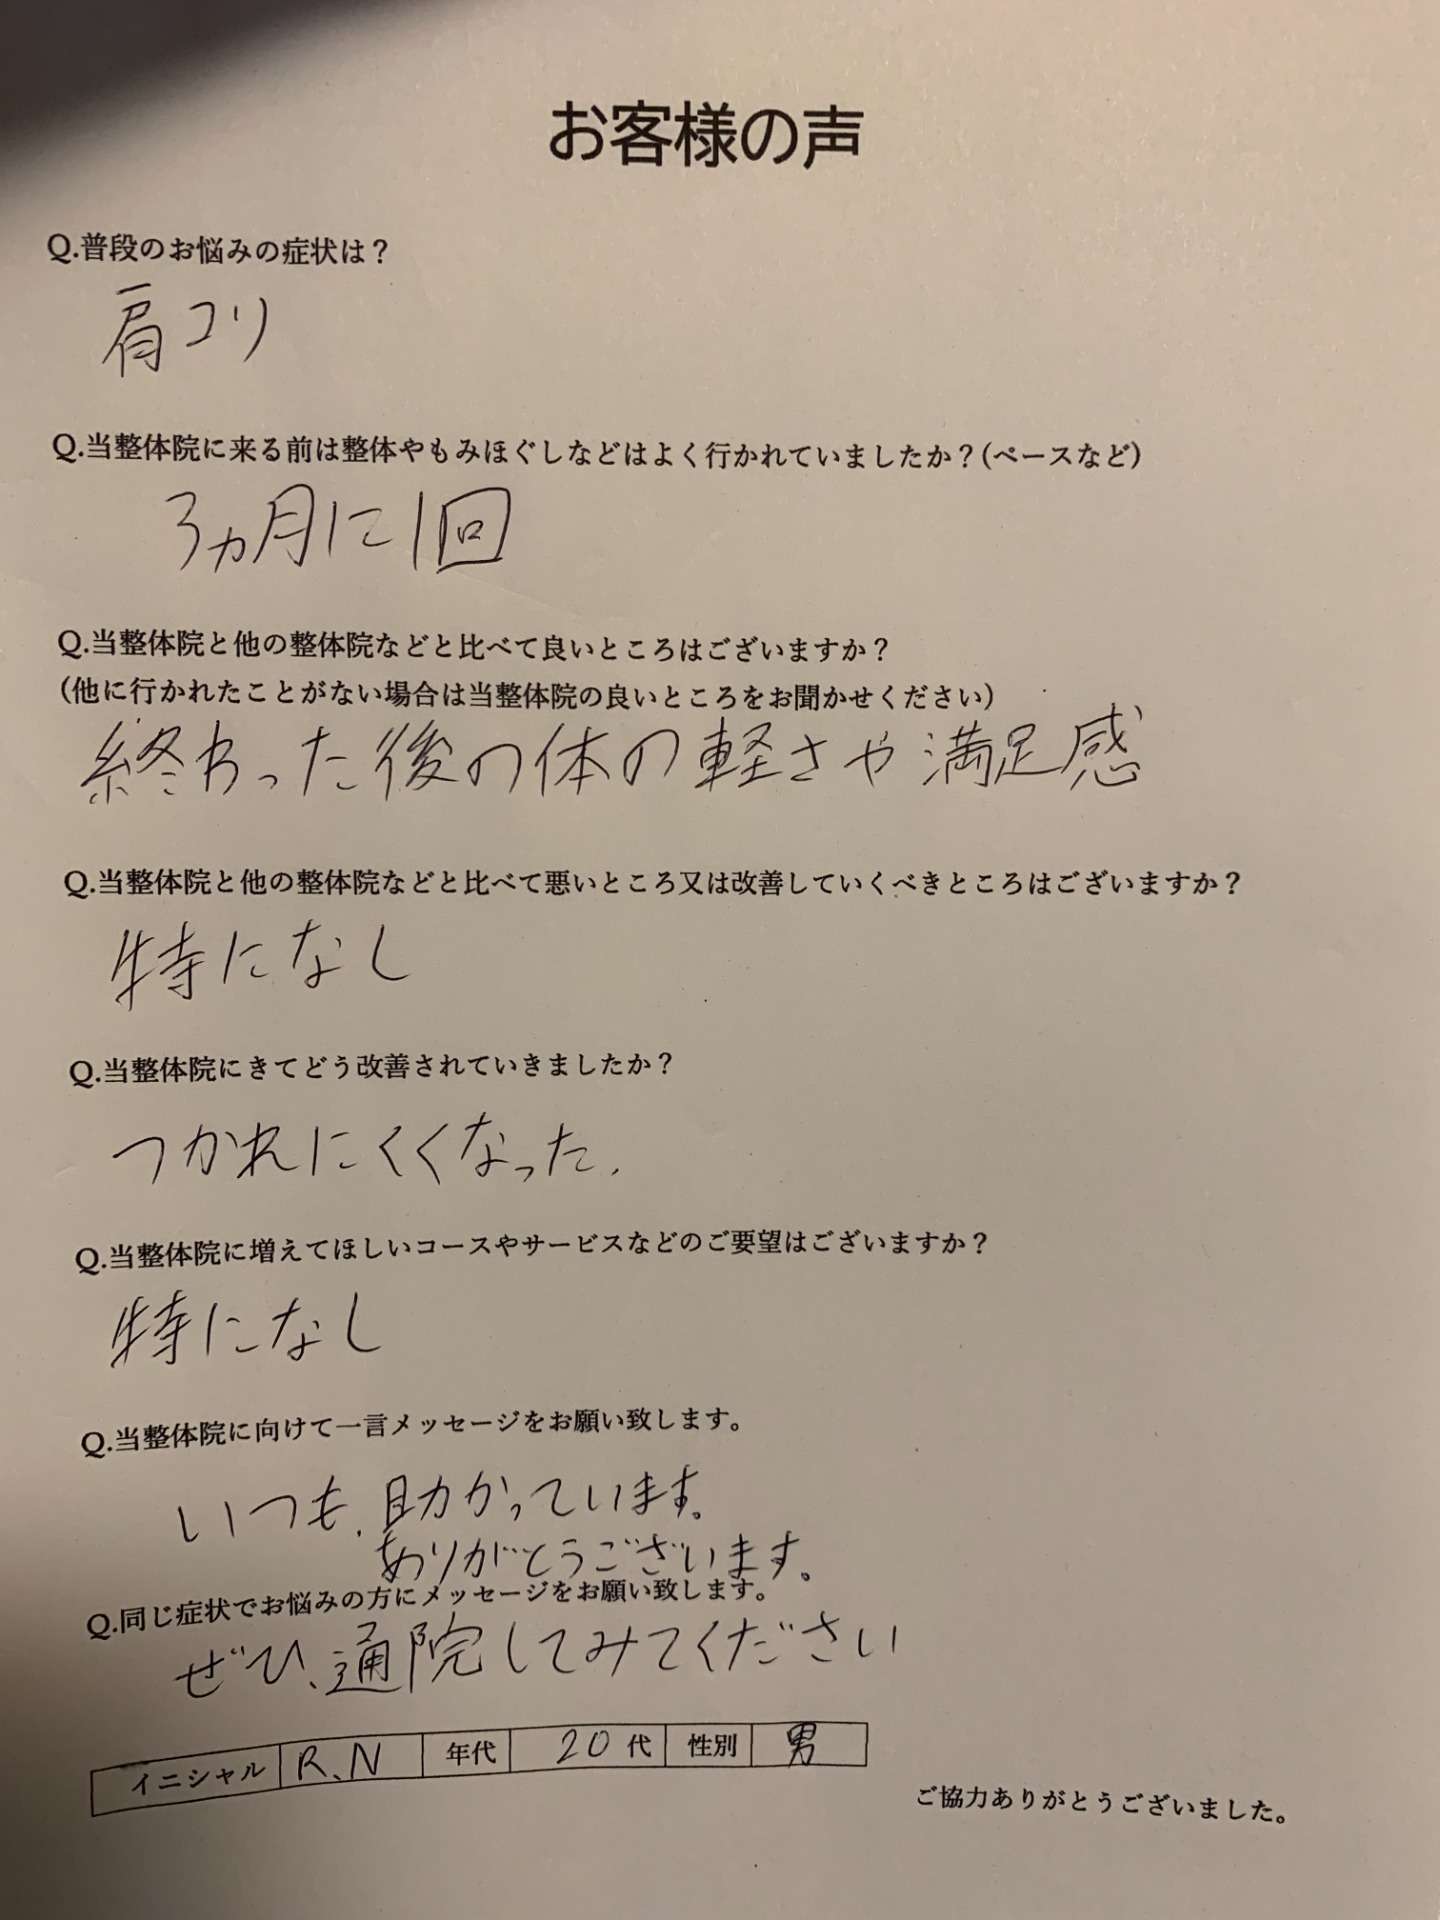 お客様の声
Q.普段のお悩みの症状は？
肩コリ
Q.当整体院に来る前は整体やもみほぐしなどはよく行かれていましたか？(ペースなど)
3ヵ月に1回
Q.当整体院と他の整体院などと比べて良いところはございますか？
(他に行かれたことがない場合は当整体院の良いところをお聞かせください)
終わった後の体の軽さや満足感
Q.当整体院と他の整体院などと比べて悪いところ又は改善していくべきところはございますか？
特になし
Q.当整体院にきてどう改善されていきましたか？
つかれにくくなった.
Q.当整体院に増えてほしいコースやサービスなどのご要望はございますか？
特になし
Q.当整体院に向けて一言メッセージをお願い致します。
いつも、助かっています。
ありがとうございます。
Q.同じ症状でお悩みの方にメッセージをお願い致します。
ぜひ、通院してみてください
イニシャル R.N 年代 20代 性別 男
ご協力ありがとうございました。